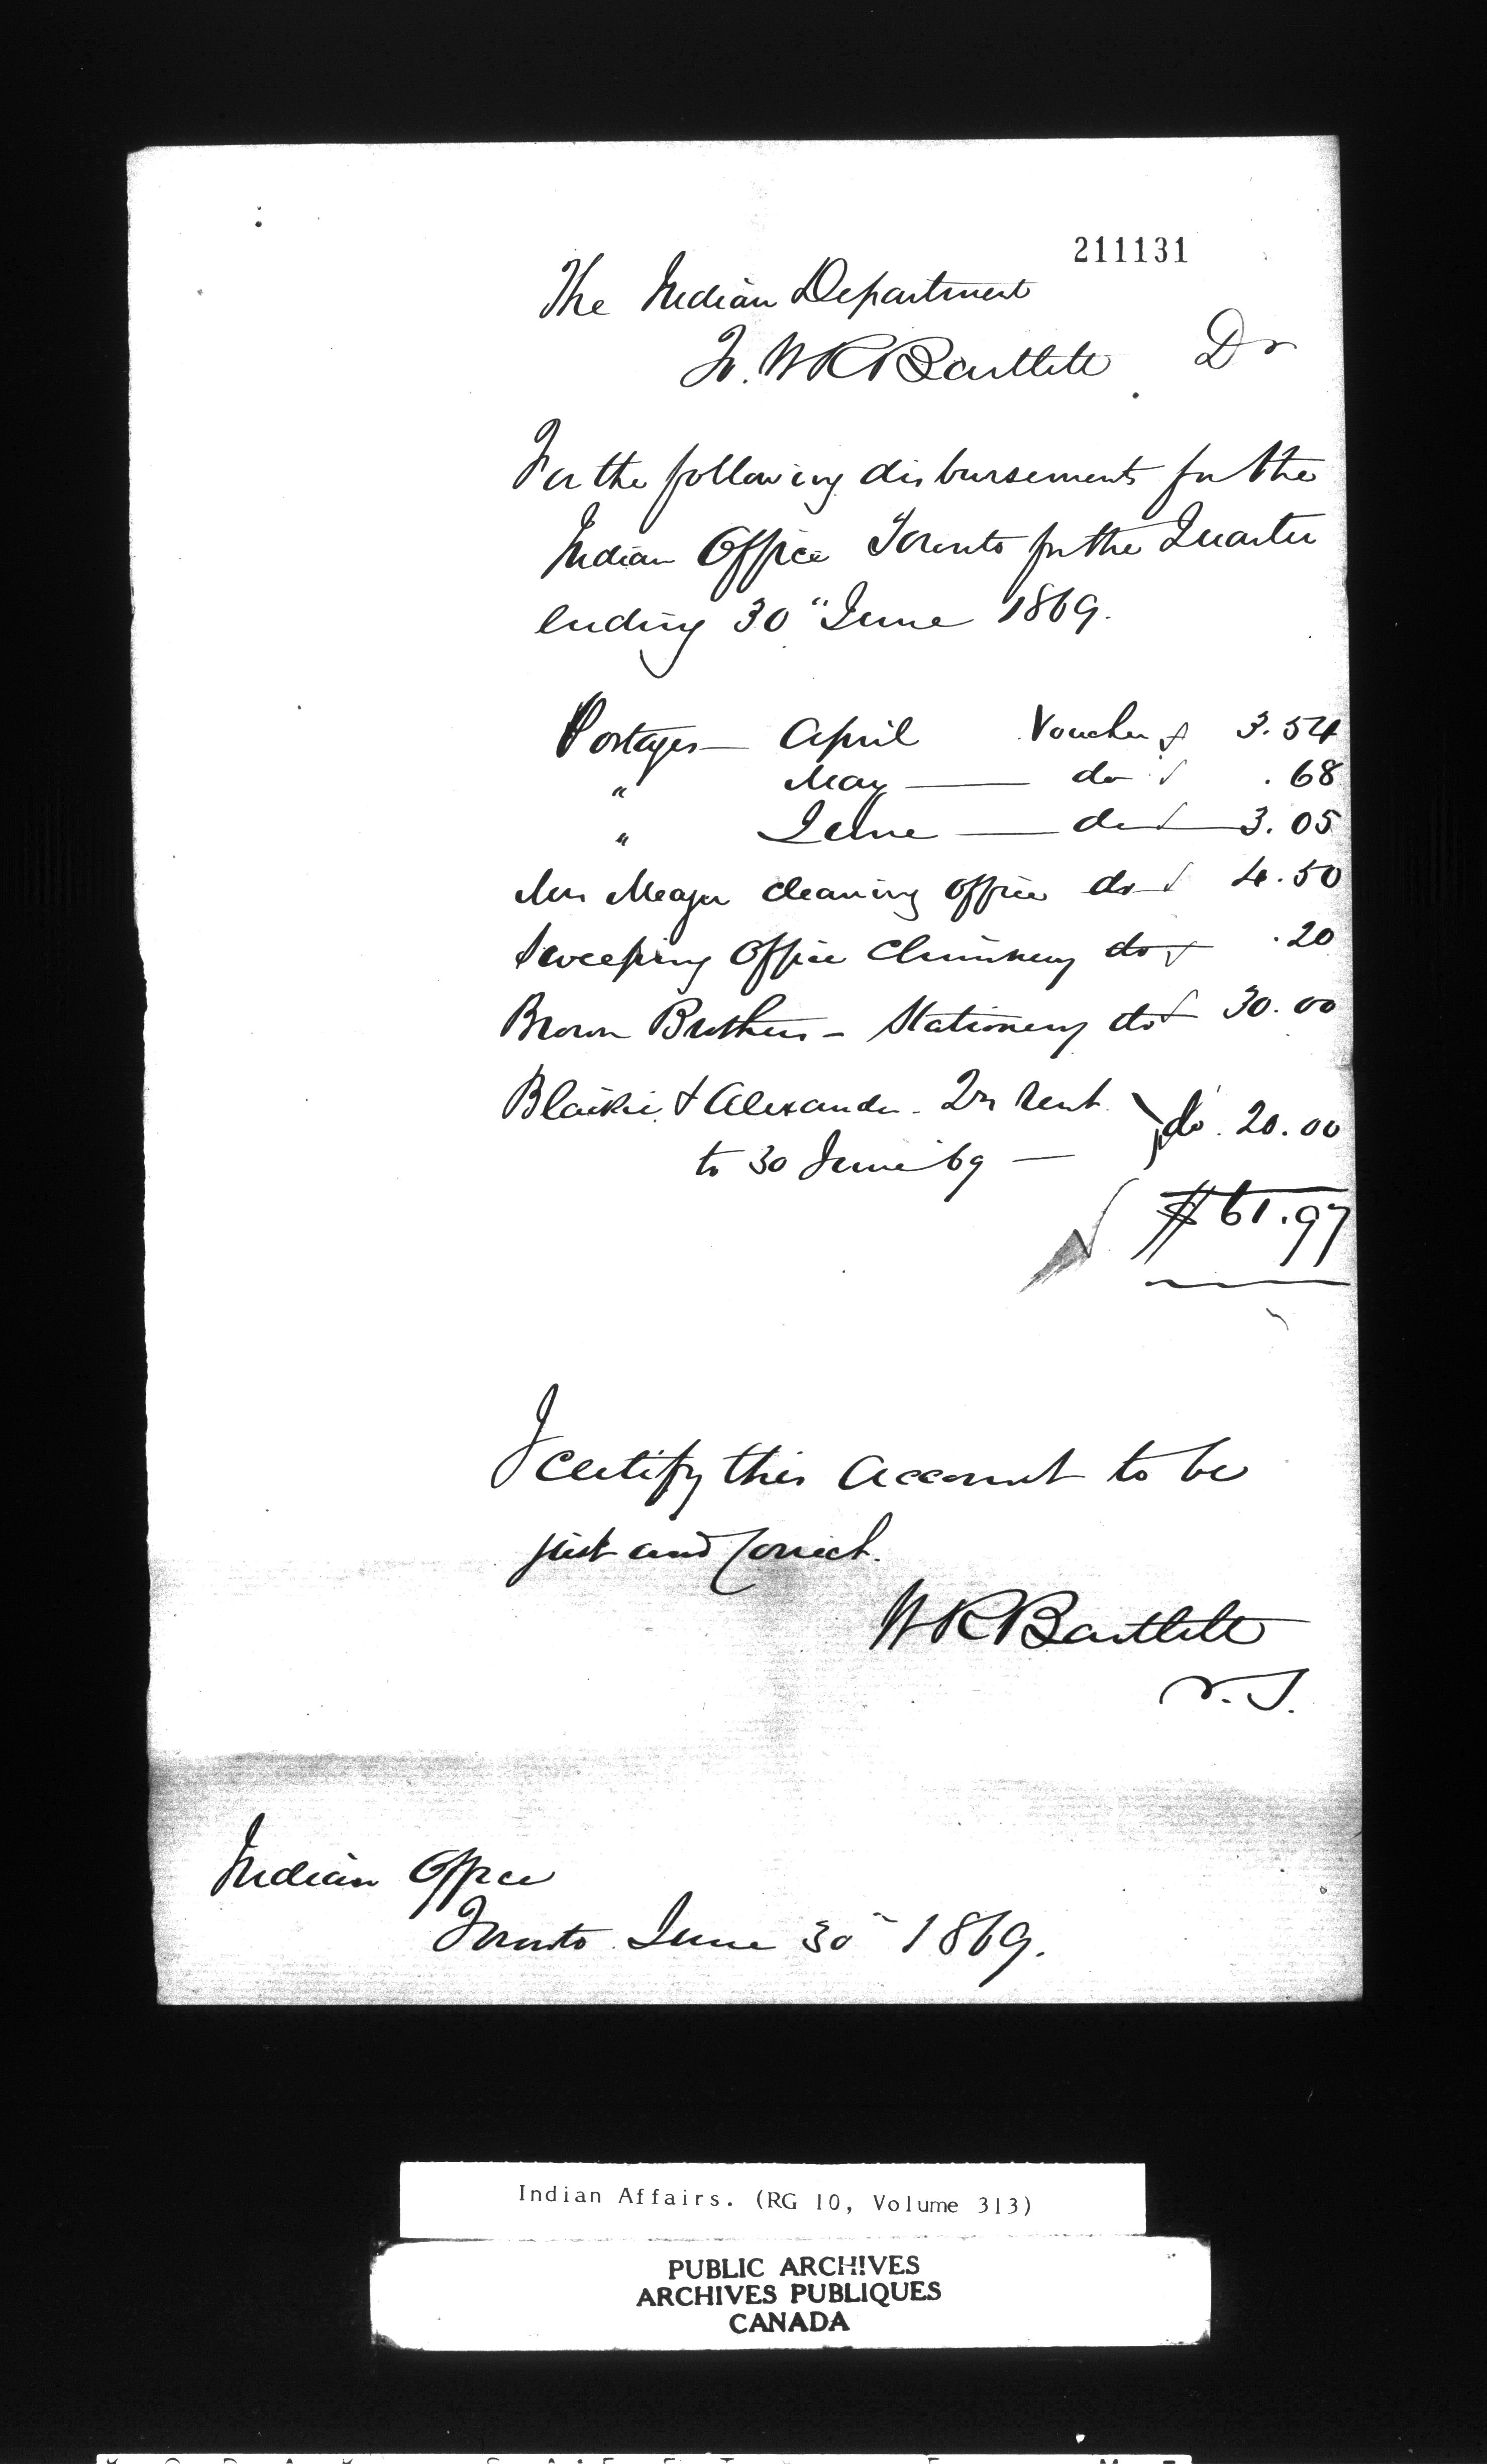 211131
The Indian Department
To. W R Bartlett Dr
For the following disbursements for the
Indian Office Toronto for the Quarter
ending 30" June 1869.
Postages — April Voucher 3.54
" May — do .68
" June — do — 3.05
Mrs Meager cleaning office do 4.50
Sweeping Office Chimney do .20
Brown Brothers - Stationery do 30.00
Blaikie & Alexander. Qr rent do. 20.00
to 30 June 69 —
$61.97
I certify this account to be
just and correct.
W R Bartlett
V. S.
Indian Office
Toronto June 30 1869.
Indian Affairs. (RG 10, Volume 313)
PUBLIC ARCHIVES
ARCHIVES PUBLIQUES
CANADA